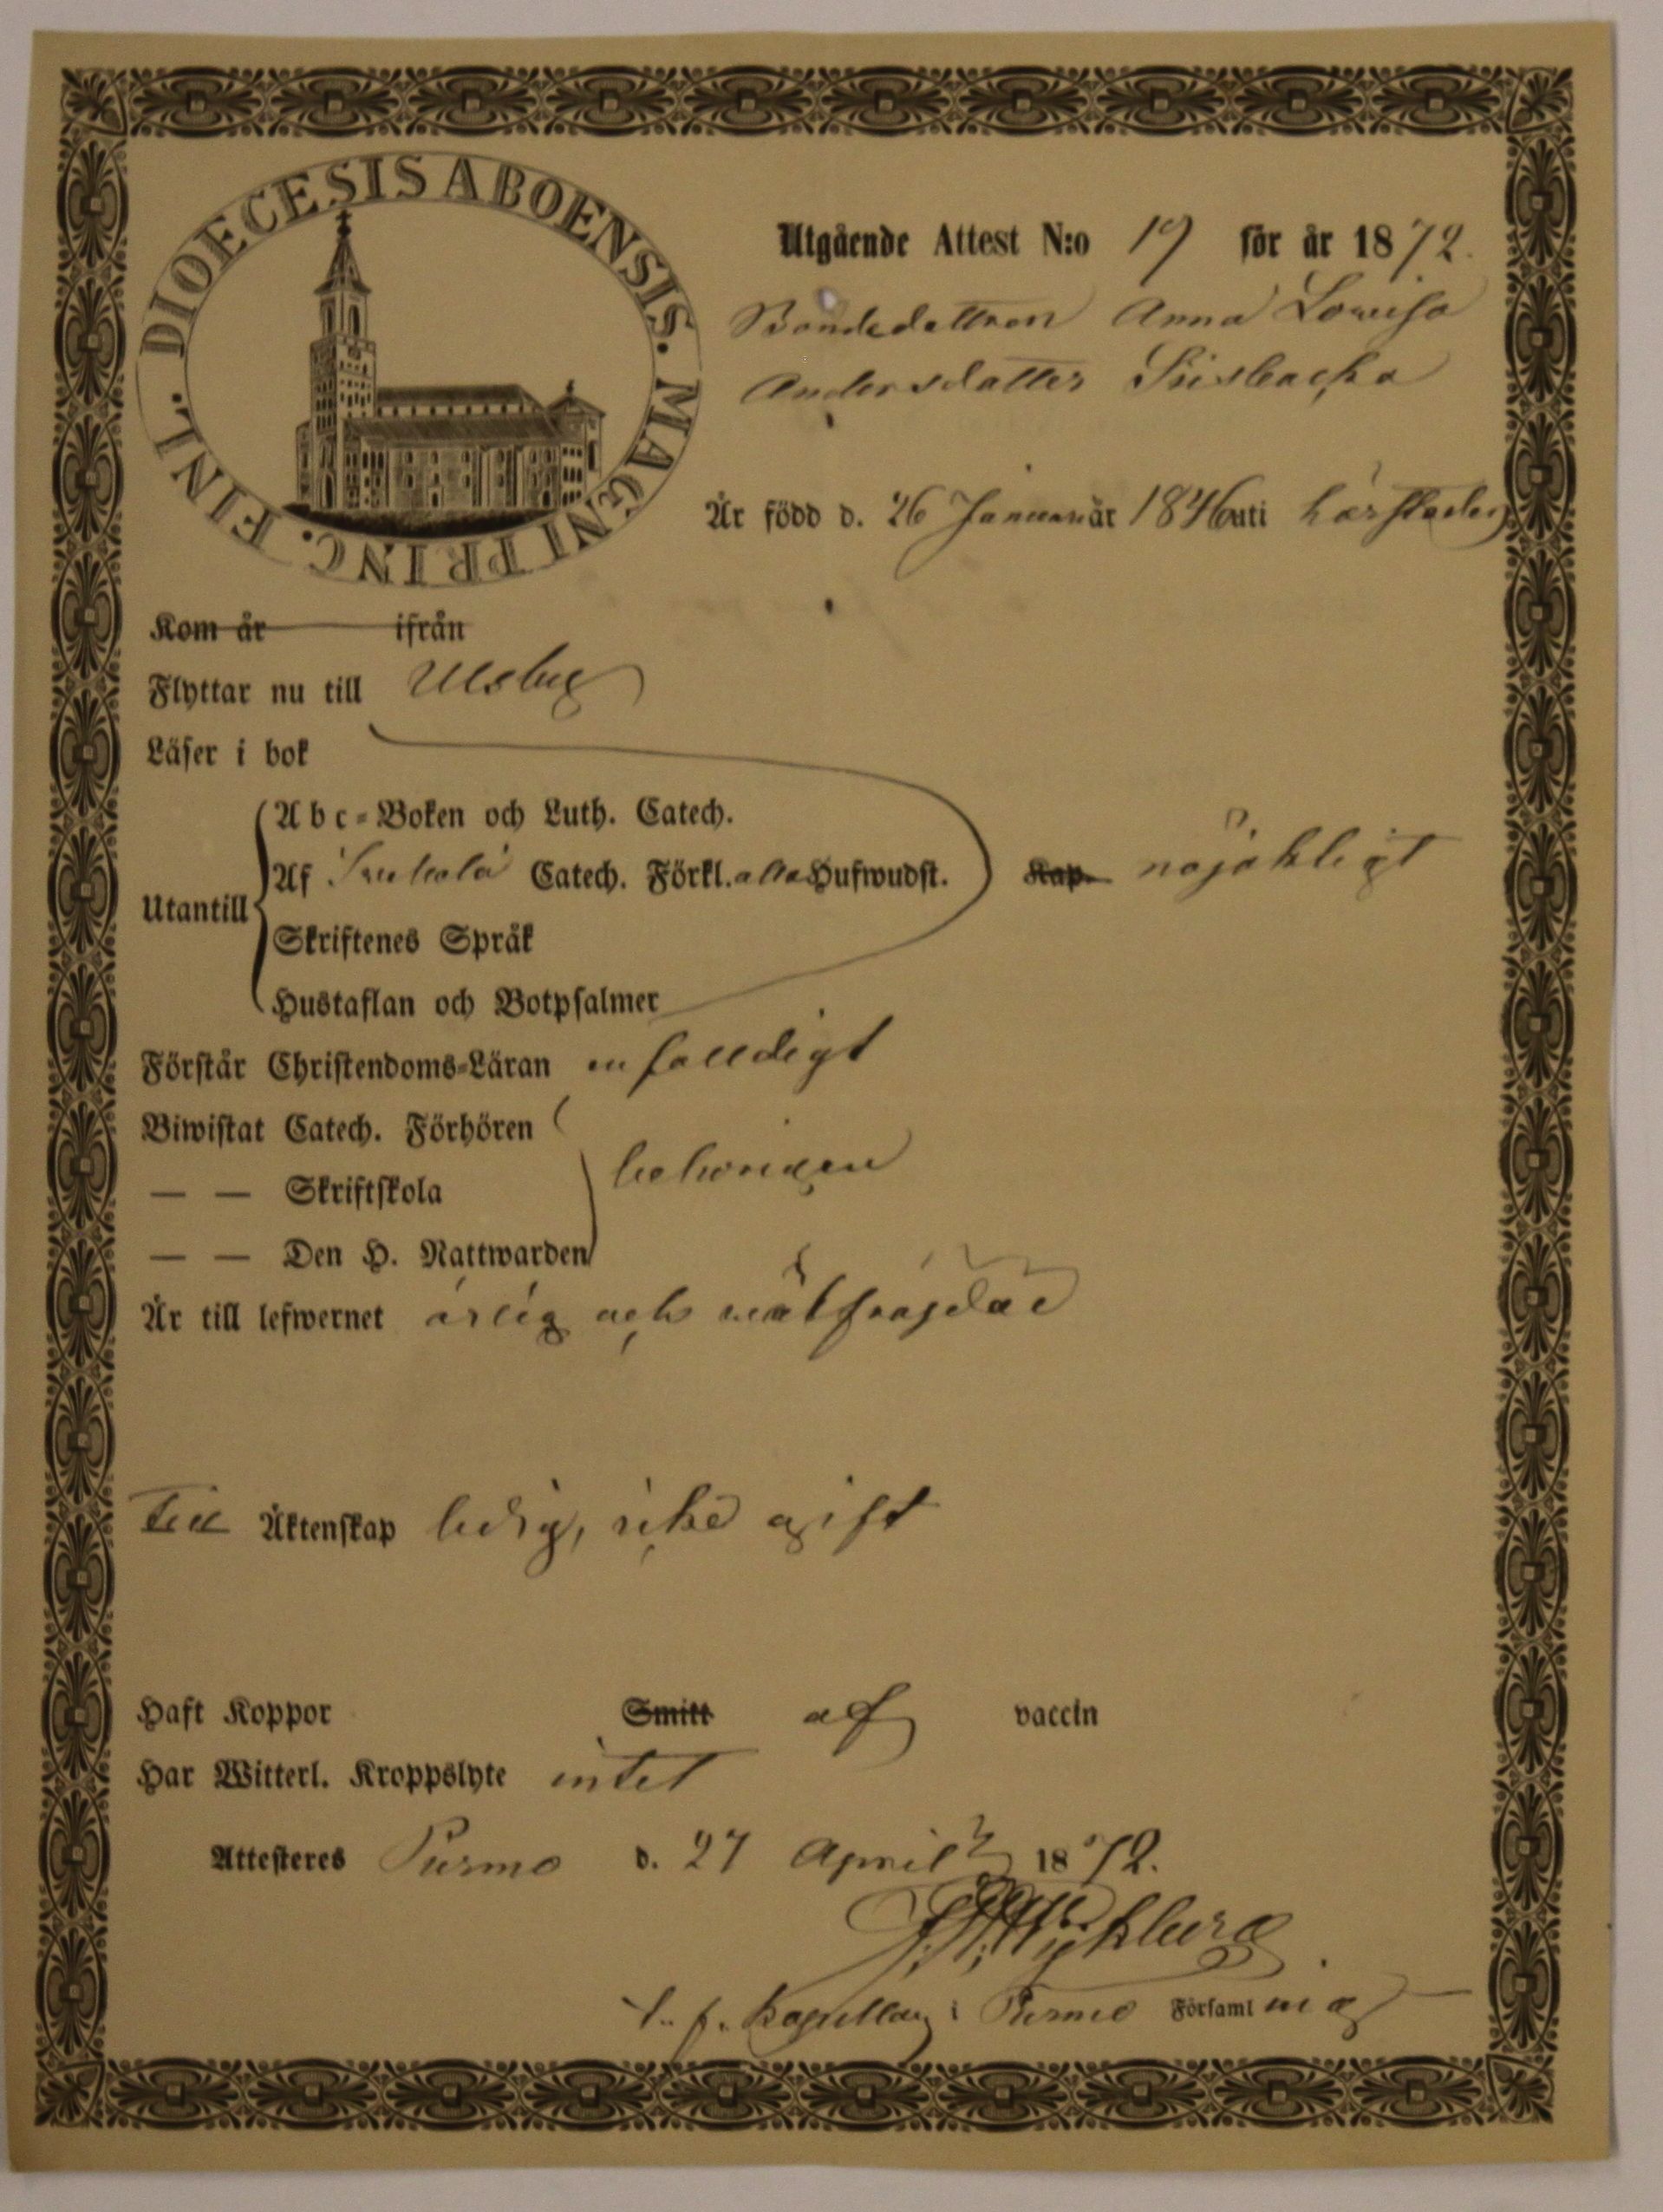 DIOECESIS ABOENSIS. MAGNI PRINC. FINL.
Utgående Attest N:o 19 för år 1872.
Bondedottren Anna Lovisa
Andersdotter Sisbacka
Är född d. 26 Januari år 1846 uti härstädes
Kom år ifrån
Flyttar nu till Ulsby
Läser i bok
Abc-Boken och Luth. Catech.
Utantill Af Catech. Förkl. alla Hufwudst. Kap. nöjaktligt
Skriftenes Språk
Hustaflan och Botpsalmer
Förstår Christendoms-Läran enfalldigt
Biwistat Catech. Förhören
— — Skriftskola behörigen
— — Den H. Nattwarden
Är till lefwernet ärlig och wälfräjdad
Till Äktenskap ledig, icke gift
Haft Koppor Smitt af vaccin
Har Witterl. Kroppslyte intet
Attesteres Purmo d. 27 April 1872.
t. f. Kapellan i Purmo Församlning